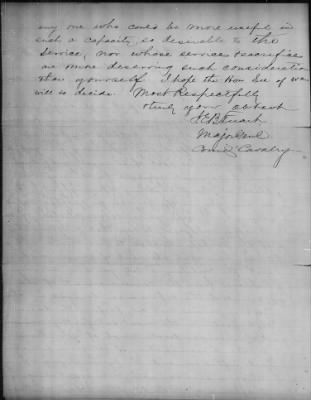 any one who could be more useful in
such a capacity, so desirable to the
service, nor whose services & sacrifices
are more deserving such consideration
than yourself. I hope the Hon Sec of War
will so decide. Most Respectfully
& truly your obt servt
J E B Stuart
Major Genl
Comd'g Cavalry